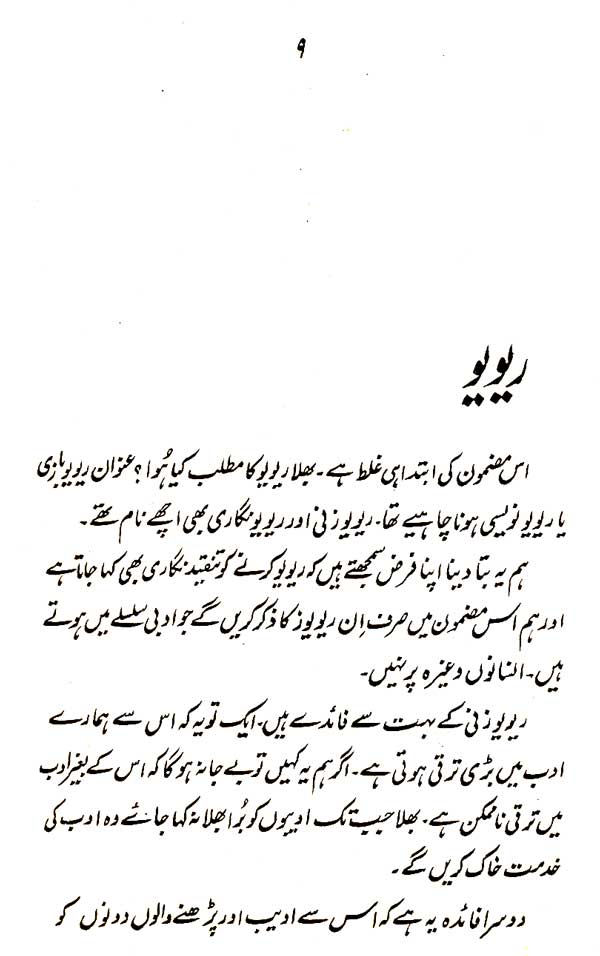 ۹
ریویو
اس مضمون کی ابتدا ہی غلط ہے۔ بھلا ریویو کا مطلب کیا ہُوا؟ عنوان ریویو بازی
یا ریویو نویسی ہونا چاہیے تھا۔ ریویوزنی اور ریویو نگاری بھی اچھے نام تھے۔
ہم یہ بتا دینا اپنا فرض سمجھتے ہیں کہ ریویو کرنے کو تنقید نگاری بھی کہا جاتا ہے
اور ہم اس مضمون میں صرف اِن ریویوز کا ذکر کریں گے جو ادبی سلسلے میں ہوتے
ہیں۔ انسانوں وغیرہ پر نہیں۔
ریویوزنی کے بہت سے فائدے ہیں۔ ایک تو یہ کہ اس سے ہمارے
ادب میں بڑی ترقی ہوتی ہے۔ اگر ہم یہ کہیں تو بے جا نہ ہوگا کہ اس کے بغیر ادب
میں ترقی ناممکن ہے۔ بھلا جب تک ادیبوں کو بُرا بھلا نہ کہا جائے وہ ادب کی
خدمت خاک کریں گے۔
دوسرا فائدہ یہ ہے کہ اس سے ادیب اور پڑھنے والوں دونوں کو